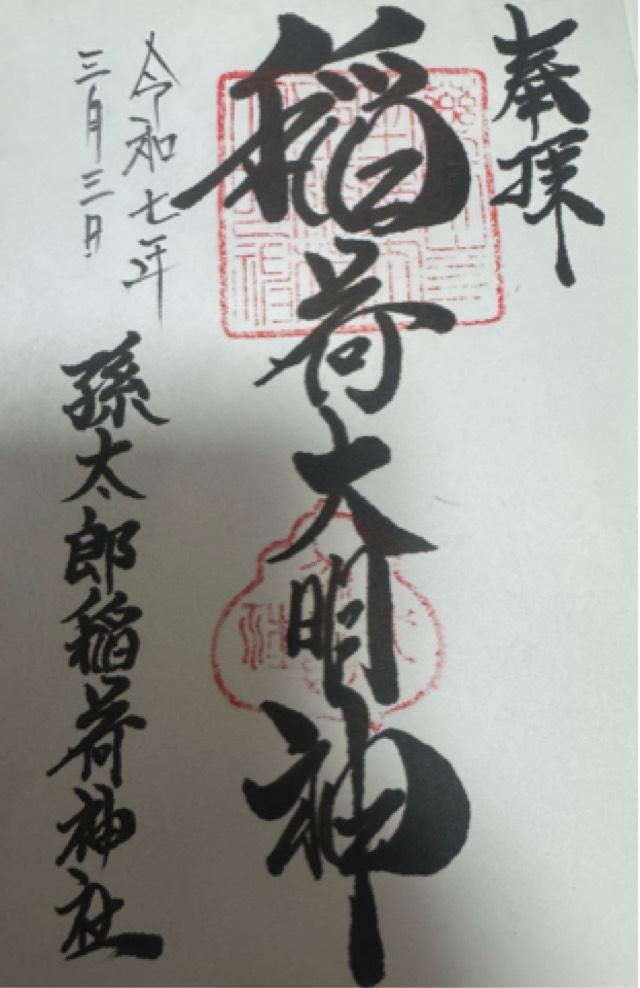 奉拝
稲荷大明神
令和七年
三月三日
孫太郎稲荷神社